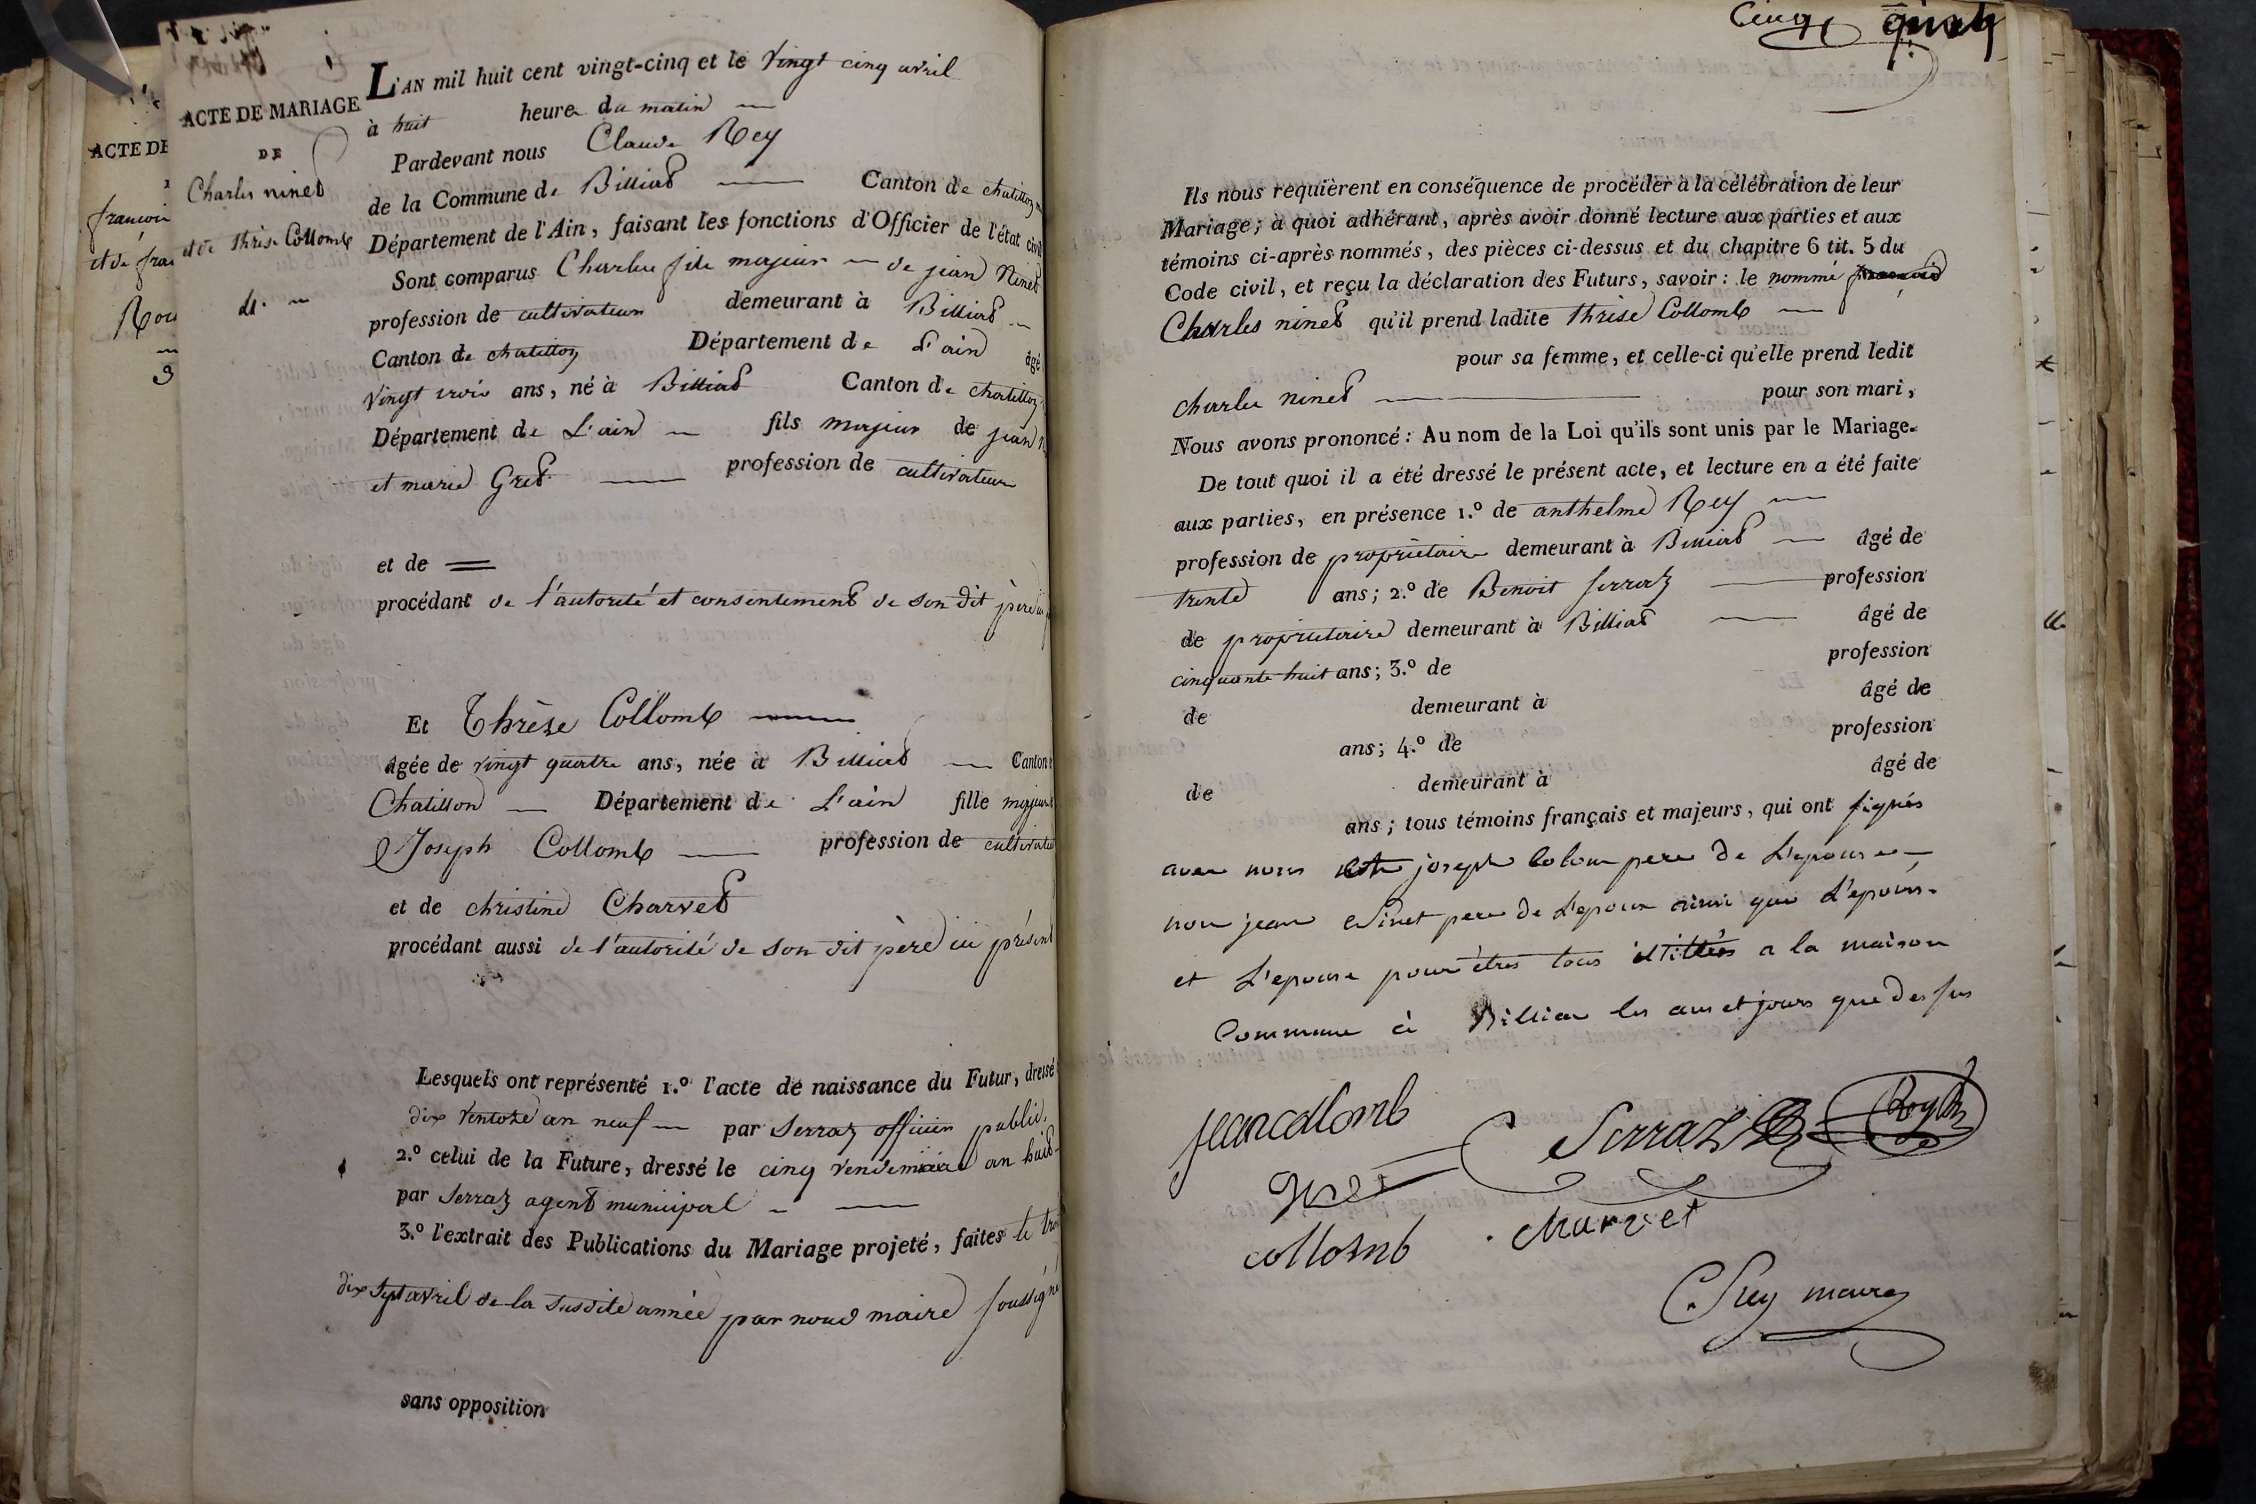 ACTE DE
françois
et de fran
ACTE DE MARIAGE
DE
Charles ninet
et de thrèse Collomb
4.
L'AN mil huit cent vingt-cinq et le vingt cinq avril
à huit heure du matin
Pardevant nous Claude Rey
de la Commune de Billiat Canton de chatillon
Département de l'Ain, faisant les fonctions d'Officier de l'état civil
Sont comparus Charles fils majeur de jean Ninet
profession de cultivateur demeurant à Billiat
Canton de chatillon Département de L'ain âgé
vingt trois ans, né à Billiat Canton de chatillon
Département de L'ain fils majeur de jean
et marie Gret profession de cultivateur
et de
procédant de l'autorité et consentement de son dit père
Et Thrèse Collomb
âgée de vingt quatre ans, née à Billiat Canton
Chatillon Département de L'ain fille majeure
Joseph Collomb profession de cultivateur
et de christine Charvet
procédant aussi de l'autorité de son dit père ici présent
Lesquels ont représenté 1.º l'acte de naissance du Futur, dressé
dix ventose an neuf par Serraz officier public.
2.º celui de la Future, dressé le cinq vendemiaire an huit
par Serraz agent municipal
3.º l'extrait des Publications du Mariage projeté, faites le
dix sept avril de la susdite année par nous maire soussigné
sans opposition
Cinq
Ils nous requièrent en conséquence de procéder à la célébration de leur
Mariage; à quoi adhérant, après avoir donné lecture aux parties et aux
témoins ci-après nommés, des pièces ci-dessus et du chapitre 6 tit. 5 du
Code civil, et reçu la déclaration des Futurs, savoir: le nommé
Charles ninet qu'il prend ladite thrèse Collomb
pour sa femme, et celle-ci qu'elle prend ledit
charles ninet pour son mari,
Nous avons prononcé: Au nom de la Loi qu'ils sont unis par le Mariage.
De tout quoi il a été dressé le présent acte, et lecture en a été faite
aux parties, en présence 1.º de anthelme Rey
profession de propriétaire demeurant à Billiat âgé de
trente ans; 2.º de Benoit Serraz profession
de propriétaire demeurant à Billiat âgé de
cinquante huit ans; 3.º de profession
de demeurant à âgé de
ans; 4.º de profession
de demeurant à âgé de
ans; tous témoins français et majeurs, qui ont signés
avec nous joseph Colom pere de L'epouse
non jean Ninet pere de L'epoux ainsi que L'epoux
et L'epouse pour êtres tous illitérés a la maison
Commune à Billiat les an et jours que dessus
jean collomb
Serraz
collomb
charvet
Rey maire